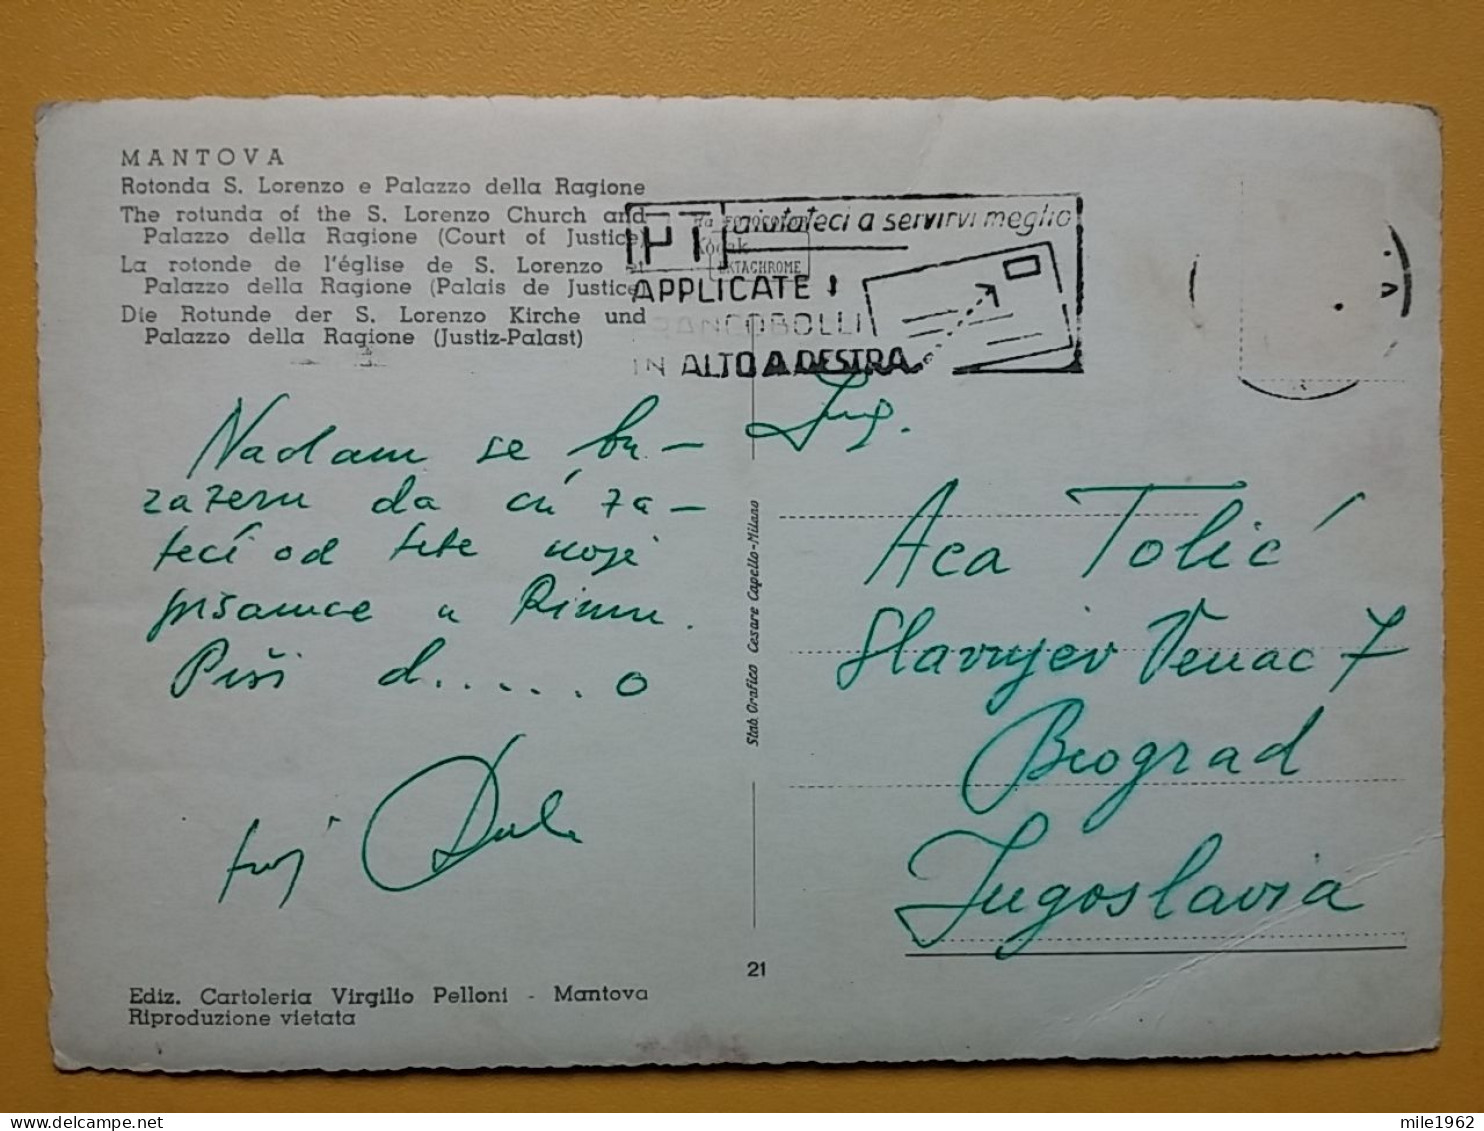 MANTOVA
Rotonda S. Lorenzo e Palazzo della Ragione
The rotunda of the S. Lorenzo Church and
Palazzo della Ragione (Court of Justice)
La rotonde de l'église de S. Lorenzo et
Palazzo della Ragione (Palais de Justice)
Die Rotunde der S. Lorenzo Kirche und
Palazzo della Ragione (Justiz-Palast)
da FOTOCOLOR
Kodak
EKTACHROME
PT aiutateci a servirvi meglio
APPLICATE I
FRANCOBOLLI
IN ALTO A DESTRA
Nadam se
da ću za-
teći od tete
u
Piši d......o
tvoj
Stab. Grafico Cesare Capello-Milano
Aca Tolić
Slavujev Venac 7
Beograd
Jugoslavia
21
Ediz. Cartoleria Virgilio Pelloni - Mantova
Riproduzione vietata
mile1962